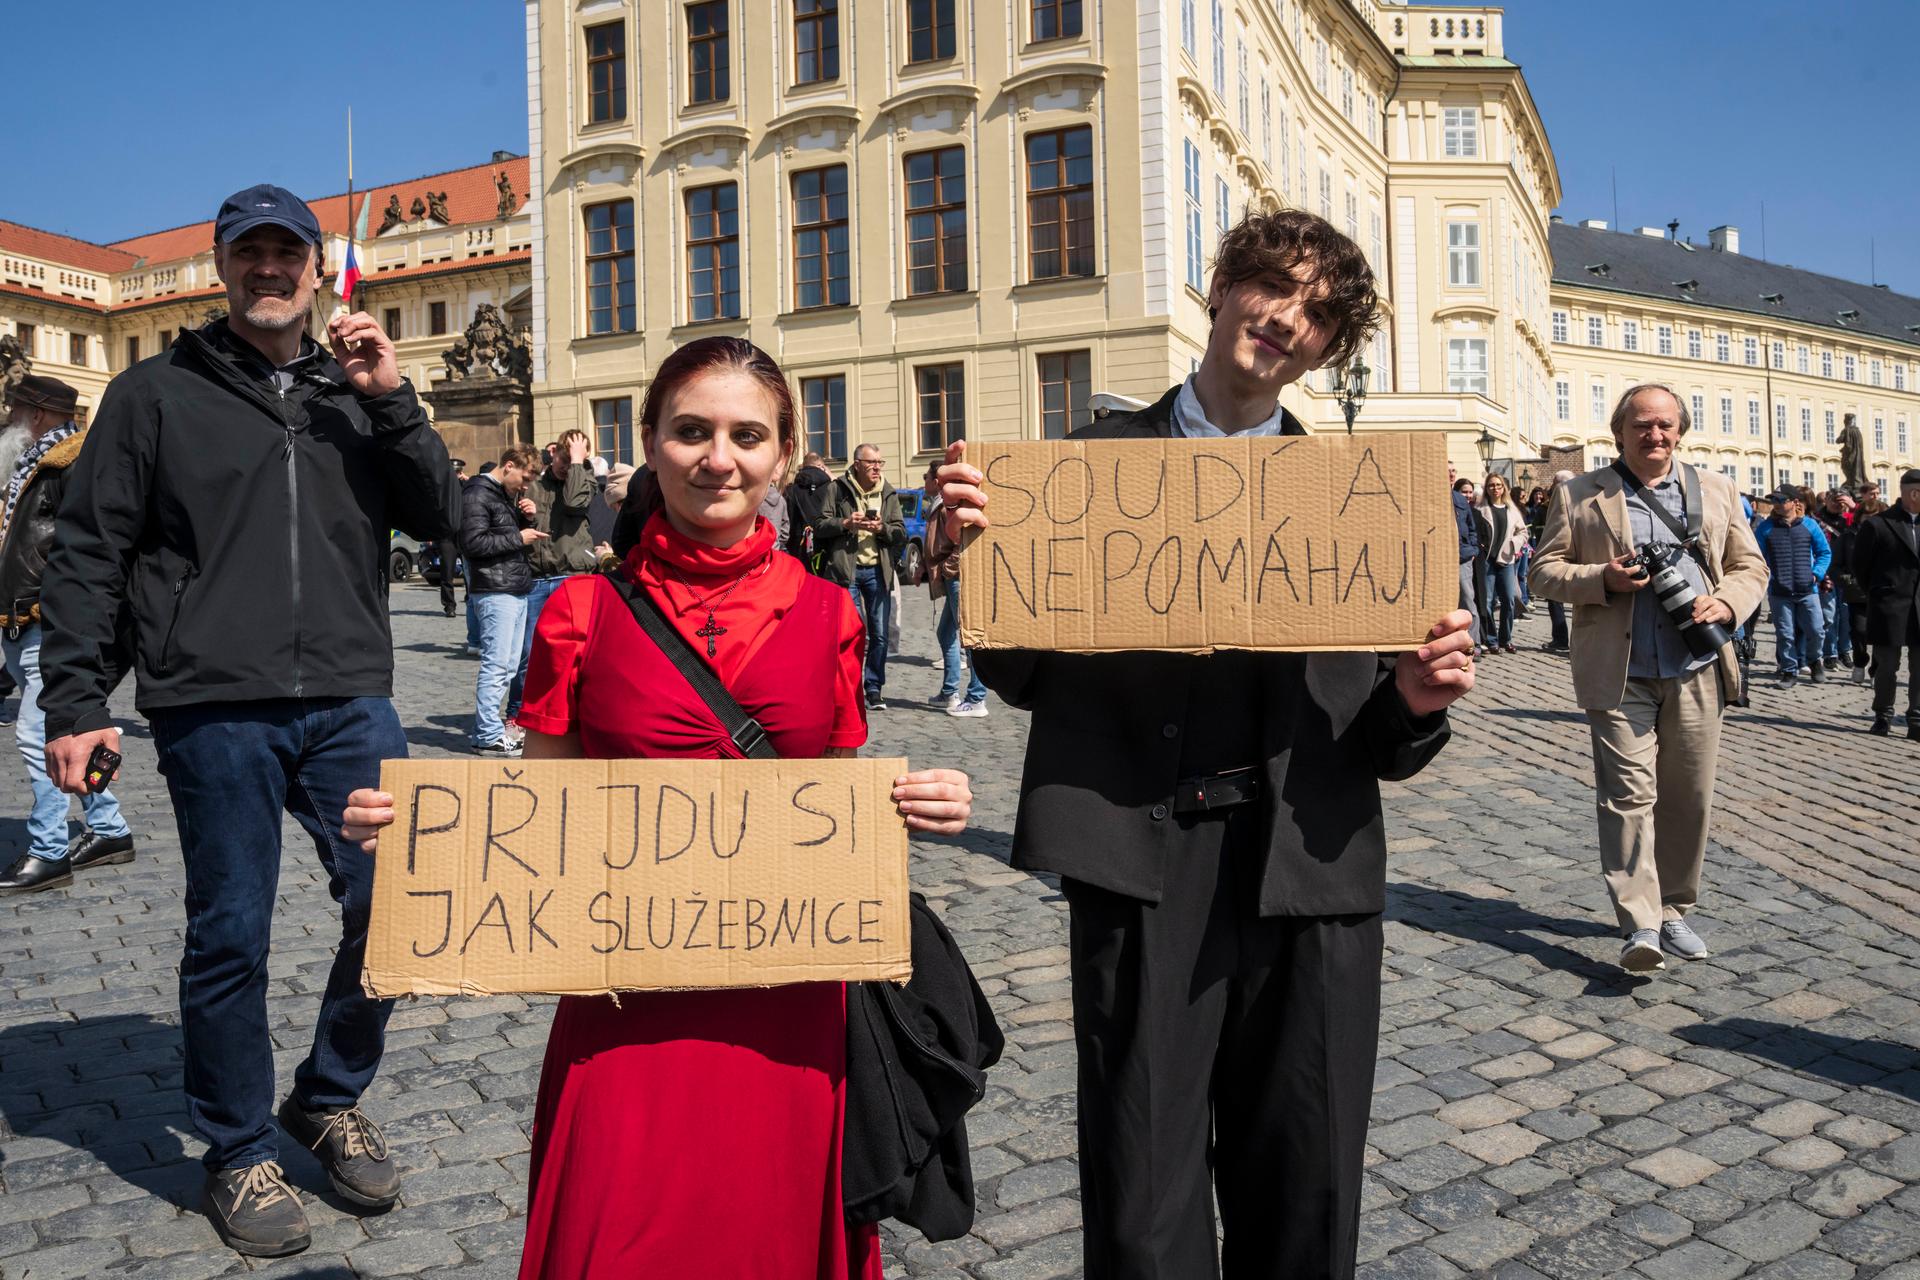 SOUDÍ A
NEPOMÁHAJÍ
PŘIJDU SI
JAK SLUŽEBNICE